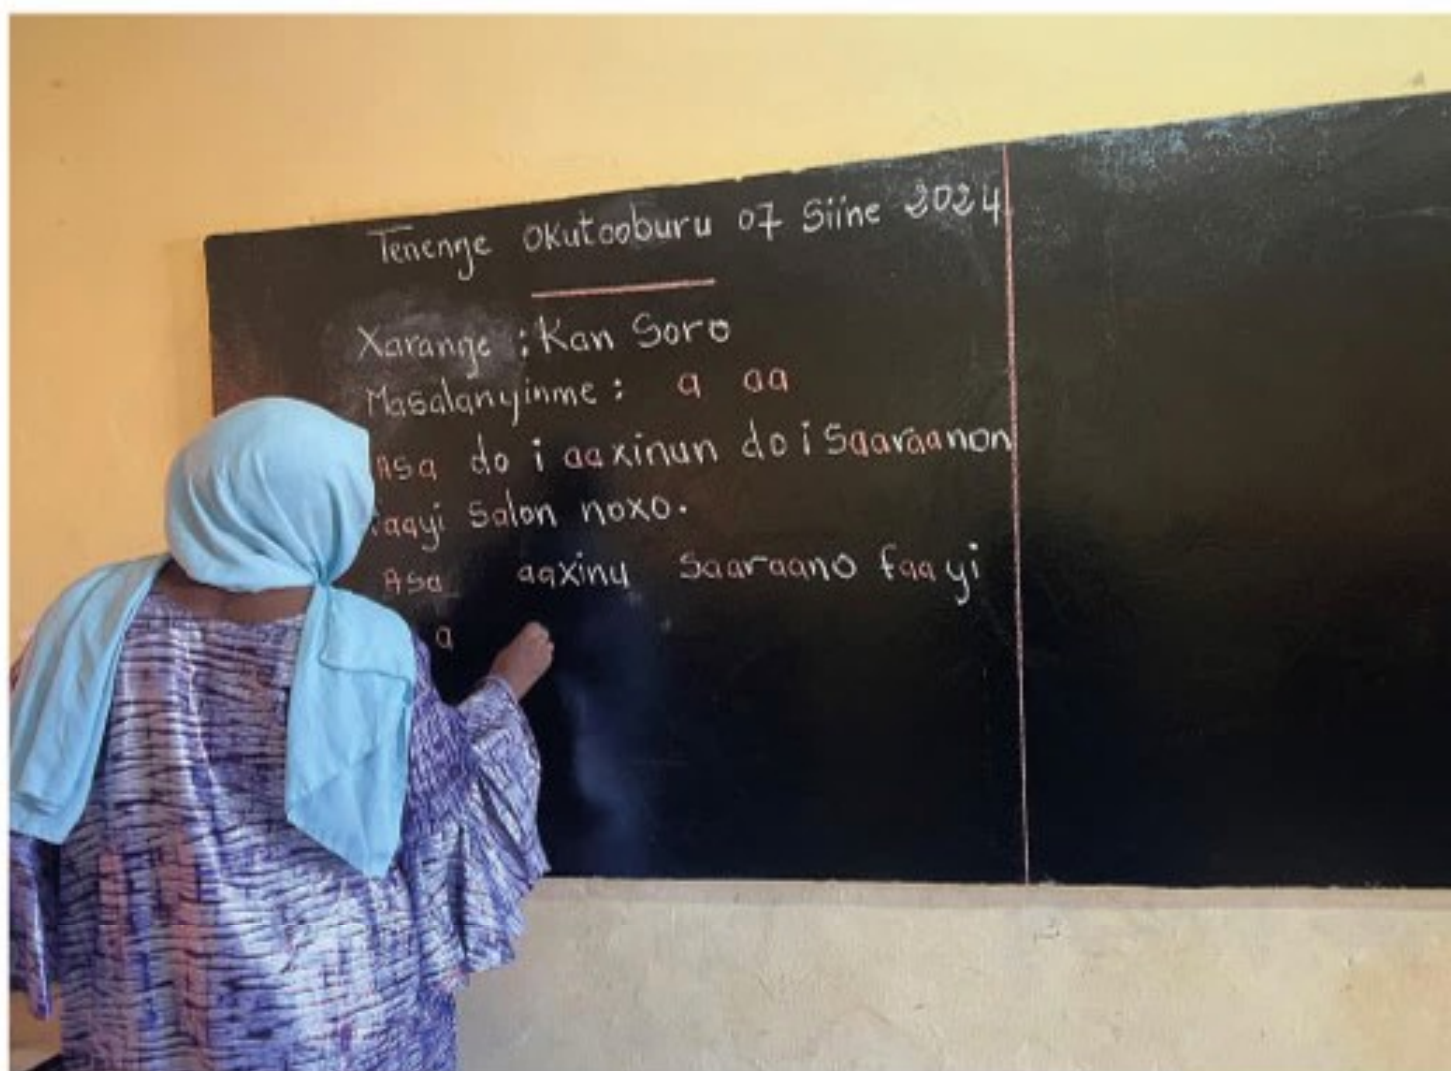 Tenenŋe Okutooburu 07 Siine 2024
Xaranŋe : Kan Soro
Masalanyinme : a aa
Asa do i aaxinun do i Saaraanon
faayi Salon noxo.
Asa aaxinu Saaraano faayi
a